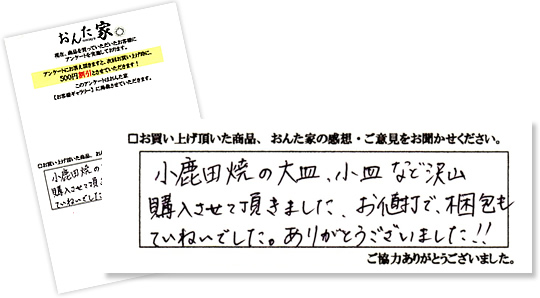 おんた家
現在、商品を買っていただいたお客様に
アンケートを実施しております。
アンケートにお答え頂きますと、次回お買い上げ時に、
500円割引とさせていただきます!
このアンケートはおんた家
【お客様ギャラリー】に掲載させていただきます。
□お買い上げ頂いた商品、おんた家の
小鹿田焼の
購入させて頂き
ていねいでした
□お買い上げ頂いた商品、おんた家の感想・ご意見をお聞かせください。
小鹿田焼の大皿、小皿など沢山
購入させて頂きました、お値打で、梱包も
ていねいでした。ありがとうございました!!
ご協力ありがとうございました。